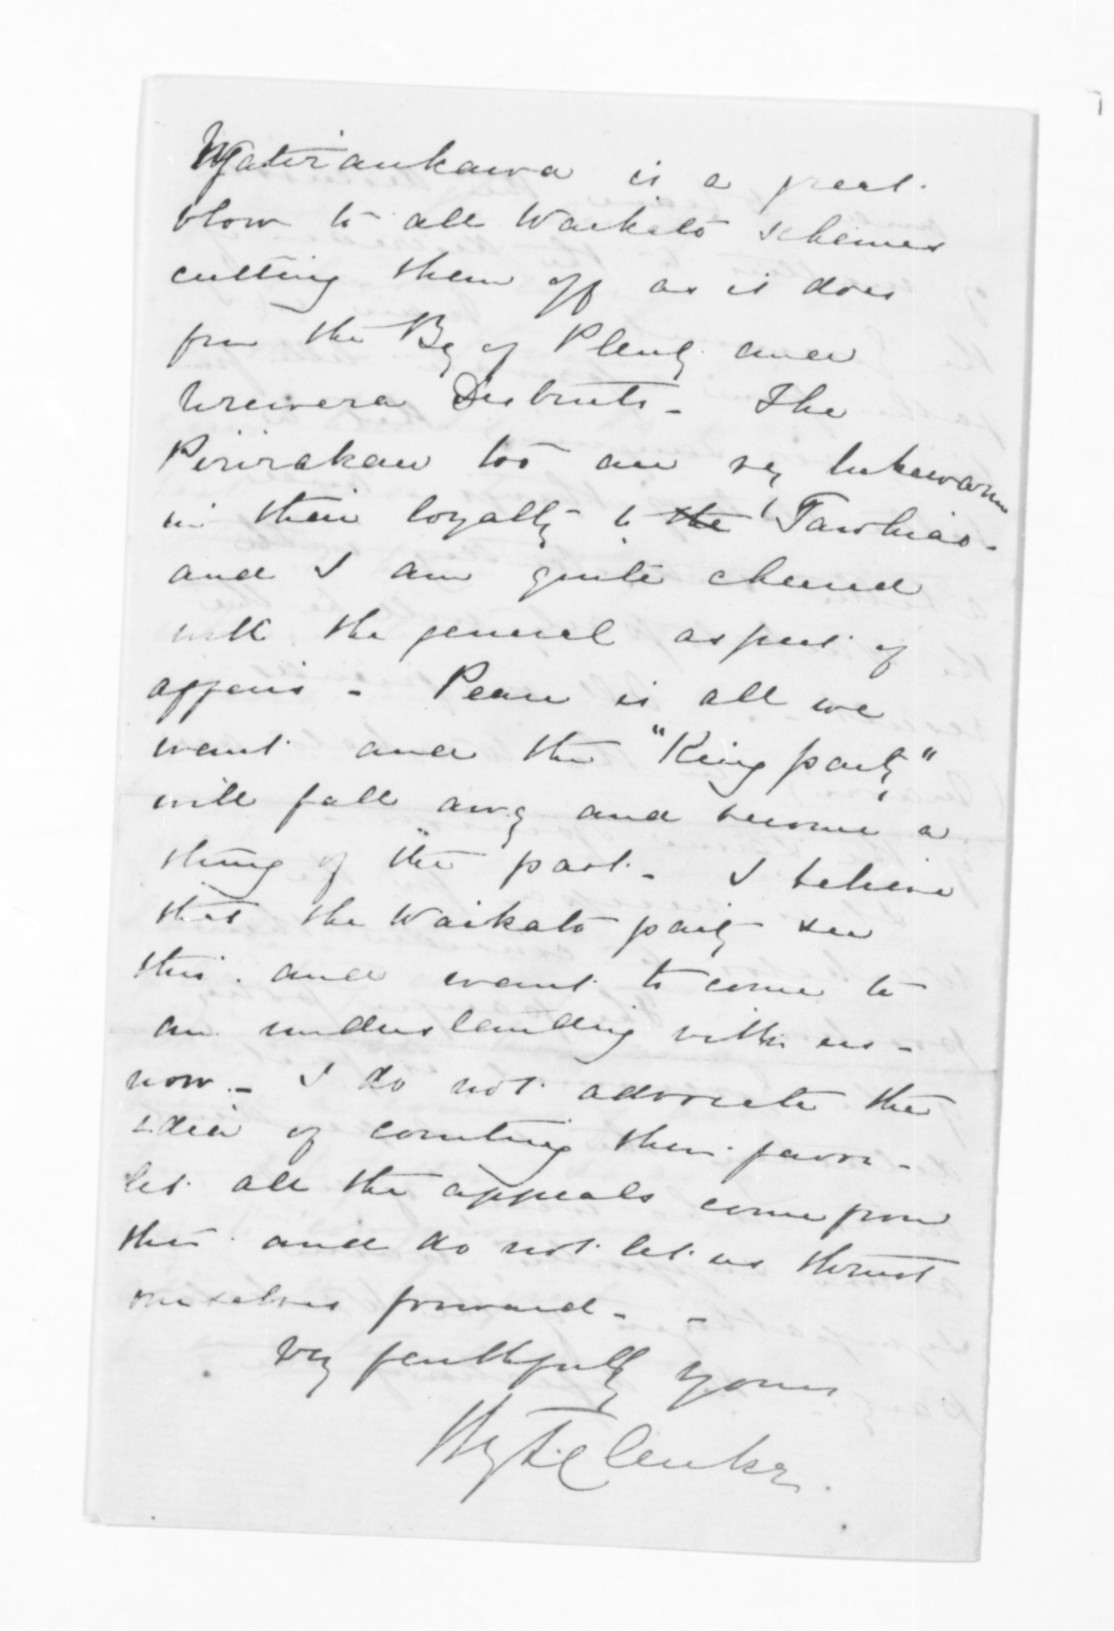 Ngatiraukawa is a great
blow to all Waikato schemes
cutting them off as it does
from the By of Plenty and
Urewera Districts - The
Piirirakau too are vy lukewarm
in their loyalty to the Tawhiao -
and I am quite cheered
with the general aspect of
affairs - Peace is all we
want and the "King party"
will fall away and become a
thing of the past - I believe
that the Waikato party see
this and want to come to
an understanding with us -
now - I do not advocate the
idea of courting their favor -
let all the appeals come from
them and do not let us thrust
ourselves forward - -
Vy faithfully yours
Hy T Clarke.